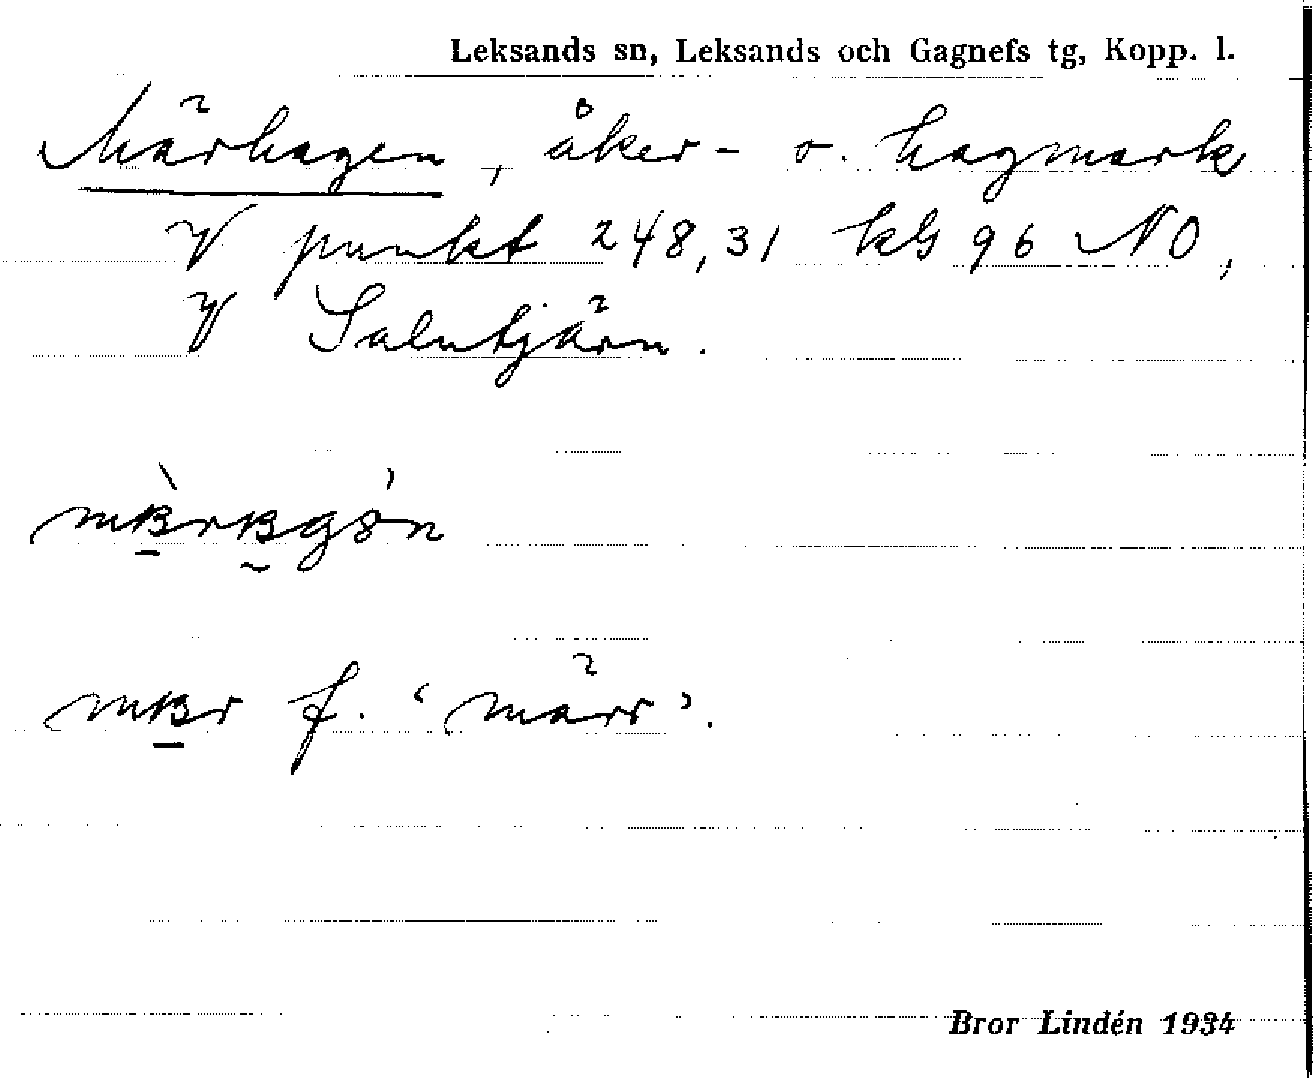 Leksands sn, Leksands och Gagnefs tg, Kopp. l.
Märhagen, åker- o. hagmark
V punkt 248,31 kG 96 NO,
V Saluтjärn.
mʙ̀rʙgǝ́n
mʙr f. ‘märr’.
Bror Lindén 1934